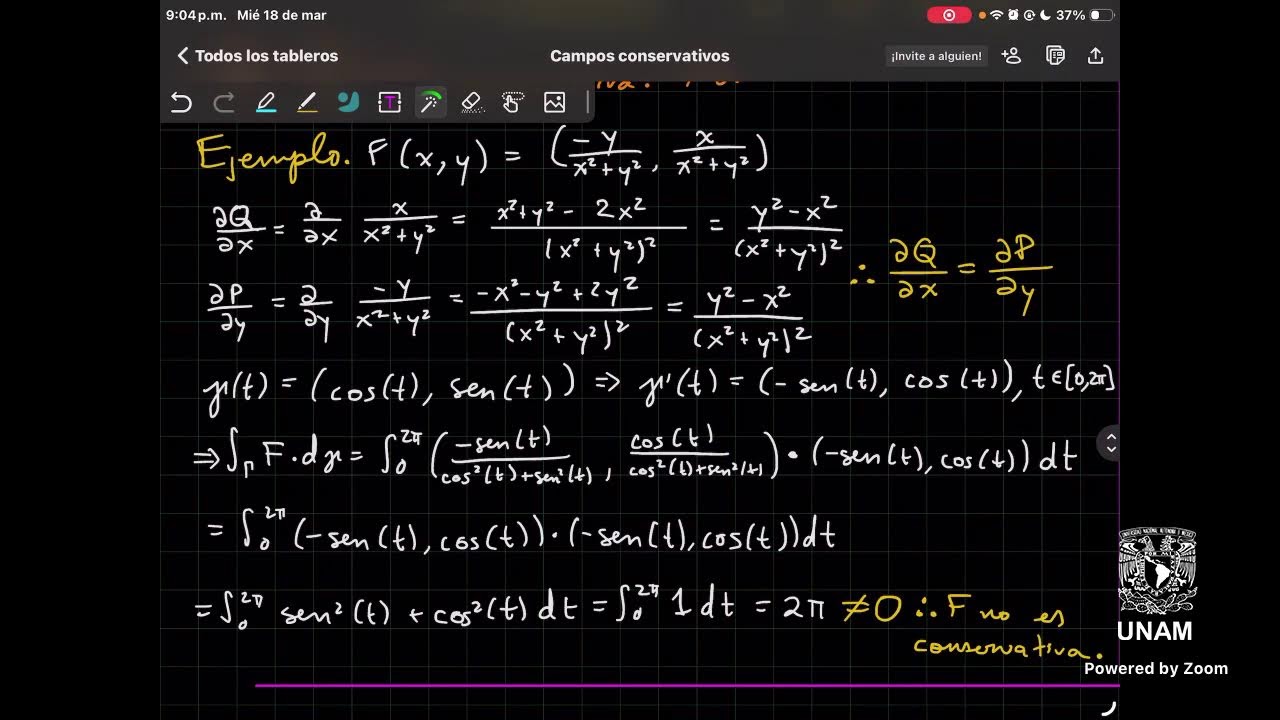 9:04 p.m. Mié 18 de mar 37%
Todos los tableros Campos conservativos ¡Invite a alguien!
Ejemplo. F(x,y) = (-y/(x²+y²), x/(x²+y²))
∂Q/∂x = ∂/∂x x/(x²+y²) = (x²+y²-2x²)/(x²+y²)² = (y²-x²)/(x²+y²)²
∴ ∂Q/∂x = ∂P/∂y
∂P/∂y = ∂/∂y -y/(x²+y²) = (-x²-y²+2y²)/(x²+y²)² = (y²-x²)/(x²+y²)²
γ(t) = (cos(t), sen(t)) ⇒ γ'(t) = (-sen(t), cos(t)), t∈[0,2π]
⇒ ∫_Γ F·dγ = ∫₀^2π (-sen(t)/(cos²(t)+sen²(t)), cos(t)/(cos²(t)+sen²(t))) · (-sen(t), cos(t)) dt
= ∫₀^2π (-sen(t), cos(t))·(-sen(t), cos(t)) dt
= ∫₀^2π sen²(t) + cos²(t) dt = ∫₀^2π 1 dt = 2π ≠ 0 ∴ F no es
conservativa.
UNAM
Powered by Zoom